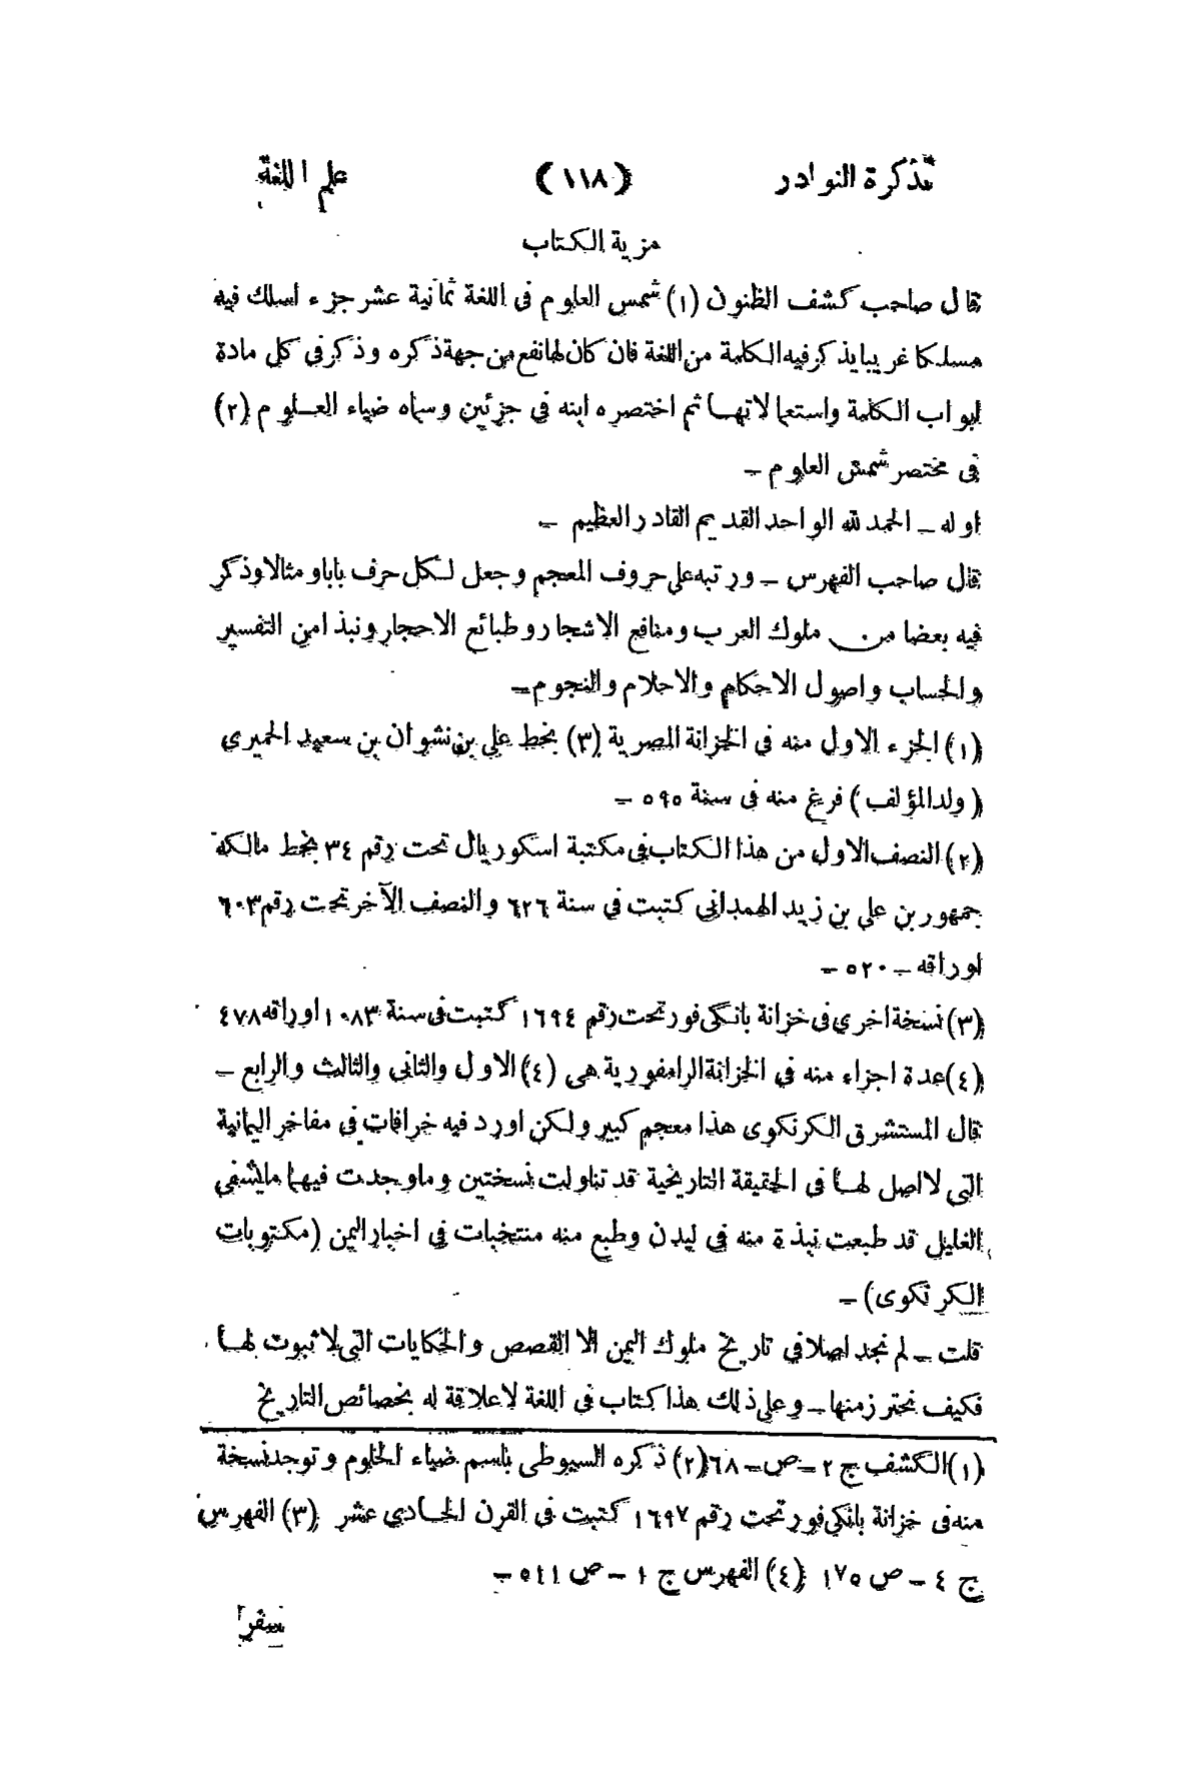 تذكرة النوادر (١١٨) علم اللغة
مزية الكتاب
قال صاحب كشف الظنون (١) شمس العلوم فى اللغة ثمانية عشر جزء اسلك فيه
مسلكا غريبا يذكر فيه الكلمة من اللغة فان كان لها نفع من جهة ذكره وذكر فى كل مادة
ابواب الكلمة واستعمالاتها ثم اختصره ابنه فى جزئين وسماه ضياء العلوم (٢)
فى مختصر شمس العلوم –
اوله – الحمد لله الواحد القديم القادر العظيم –
قال صاحب الفهرس – ورتبه على حروف المعجم وجعل لكل حرف بابا ومثالا وذكر
فيه بعضا من ملوك العرب ومنافع الاشجار وطبائع الاحجار ونبذا من التفسير
والحساب واصول الاحكام والاحلام والنجوم –
(١) الجزء الاول منه فى الخزانة المصرية (٣) بخط على بن نشوان بن سعيد الحميرى
(ولد المؤلف) فرغ منه فى سنة ٥٩٥ –
(٢) النصف الاول من هذا الكتاب فى مكتبة اسكوريال تحت رقم ٣٤ بخط مالكه
جمهور بن على بن زيد الهمدانى كتبت فى سنة ٦٢٦ والنصف الآخر تحت رقم ٦٠٣
اوراقه – ٥٢٠ –
(٣) نسخة اخرى فى خزانة بانكى فور تحت رقم ١٦٩٤ كتبت فى سنة ١٠٨٣ اوراقه ٤٧٨
(٤) عدة اجزاء منه فى الخزانة الرامفورية هى (٤) الاول والثانى والثالث والرابع –
قال المستشرق الكرنكوى هذا معجم كبير ولكن اورد فيه خرافات فى مفاخر اليمانية
التى لا اصل لها فى الحقيقة التاريخية قد تناولت نسختين وما وجدت فيهما ما يشفى
الغليل قد طبعت نبذة منه فى ليدن وطبع منه منتخبات فى اخبار اليمن (مكتوبات
الكرنكوى) –
قلت – لم نجد اصلا فى تاريخ ملوك اليمن الا القصص والحكايات التى لا ثبوت لها
فكيف نحترز منها – وعلى ذلك هذا كتاب فى اللغة لا علاقة له بخصائص التاريخ
(١) الكشف ج ٢ – ص – ٦٨ (٢) ذكره السيوطى باسم ضياء الحلوم وتوجد نسخة
منه فى خزانة بانكى فور تحت رقم ١٦٩٧ كتبت فى القرن الحادى عشر (٣) الفهرس
ج ٤ – ص ١٧٥ (٤) الفهرس ج ١ – ص ٥١١ –
سفرا